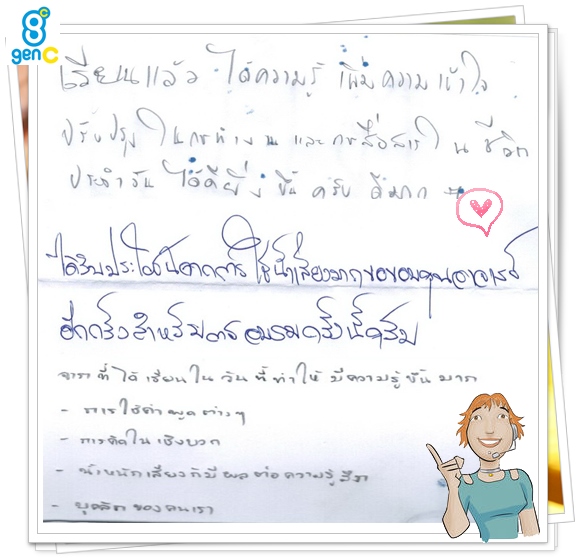 8C
genC
เรียนแล้ว ได้ความรู้ เพิ่มความเข้าใจ
ปรับปรุง ในการทำงาน และการสื่อสารในชีวิต
ประจำวัน ได้ดียิ่งขึ้น ครับ ดีมาก
ได้รับประโยชน์จากการใช้น้ำเสียงมากขอขอบคุณอาจารย์
อีกครั้งสำหรับการอบรมครั้งนี้ครับ
จากที่ได้เรียนในวันนี้ทำให้มีความรู้ขึ้นมาก
- การใช้คำพูดต่างๆ
- การคิดในเชิงบวก
- น้ำหนักเสียงก็มีผลต่อความรู้สึก
- บุคลิกของคนเรา